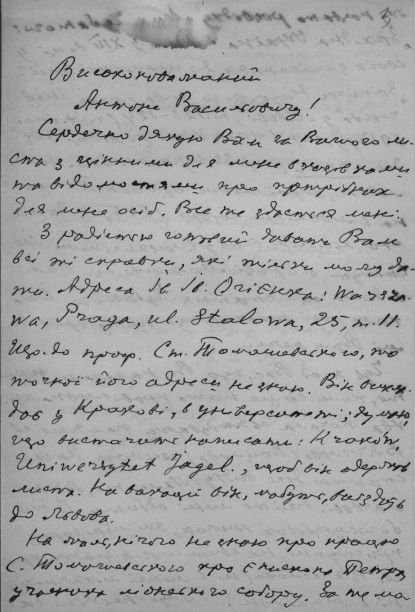 3
Високоповажаний
Антоне Васильовичу!
Сердечно дякую Вам за Вашого ли-
ста з цінними для мене вказівками
та відомостями про потрібних
для мене осіб. Все те здасться мені.
З радістю готовий давати Вам
всі ті справки, які тільки можу да-
ти. Адреса Ів. Ів. Огієнка: Warsza-
wa, Praga, ul. Stalowa, 25, m. 11.
Що-до проф. Ст. Томашевського, то
точної його адреси не знаю. Він викла-
дає у Кракові, в університеті; думаю,
що вистачить написати: Kraków,
Uniwersytet Jagel., щоб він одержав
листа. На вакації він, мабуть, виїздить
до Львова.
На жаль, нічого не знаю про працю
С. Томашевського про Єпископа Петра,
учасника ліонського собору. За те ма